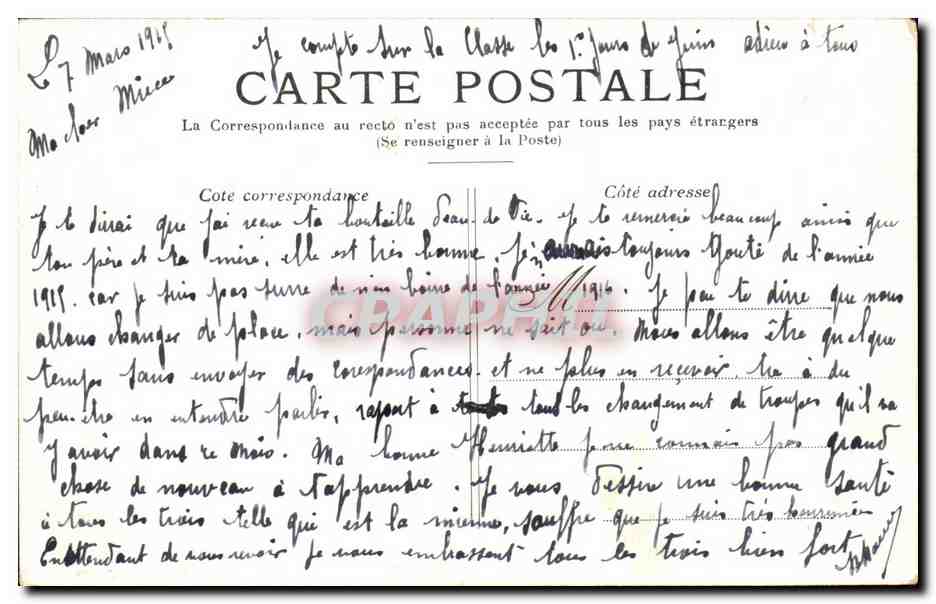 Le 7 Mars 1915
Ma cher Miece
Je compte sur la Classe les 1er jours de Juin adieu à tous
CARTE POSTALE
La Correspondance au recto n'est pas acceptée par tous les pays étrangers
(Se renseigner à la Poste)
Cote correspondance
Côté adresse
Je te dirai que jai recue ta bouteille d'eau-de Vie. Je te remercie beaucoup ainsi que
ton père et ta mère, elle est très bonne. J'en aurais toujours Gouté de l'année
1915. car je suis pas surre de n'en boire de l'année 1916. Je peu te dirre que nous
M
CPAPHIL
allons changer de place. mais personne ne sait ou. Nous allons être quelque
temps sans envoyer des corespondances et ne plus en reçevoir. tu a du
peu-etre en entendre parler, raport à tous les changement de troupes qu'il va
y avoir dans ce mois. Ma bonne Henriette je ne connais pas grand
chose de nouveau à t'apprendre. Je vous dessire une bonne santé
à tous les trois telle qui est la mienne, souffre que je suis très enrumée
En attendant de vous revoir je vous embrassent tous les trois bien fort